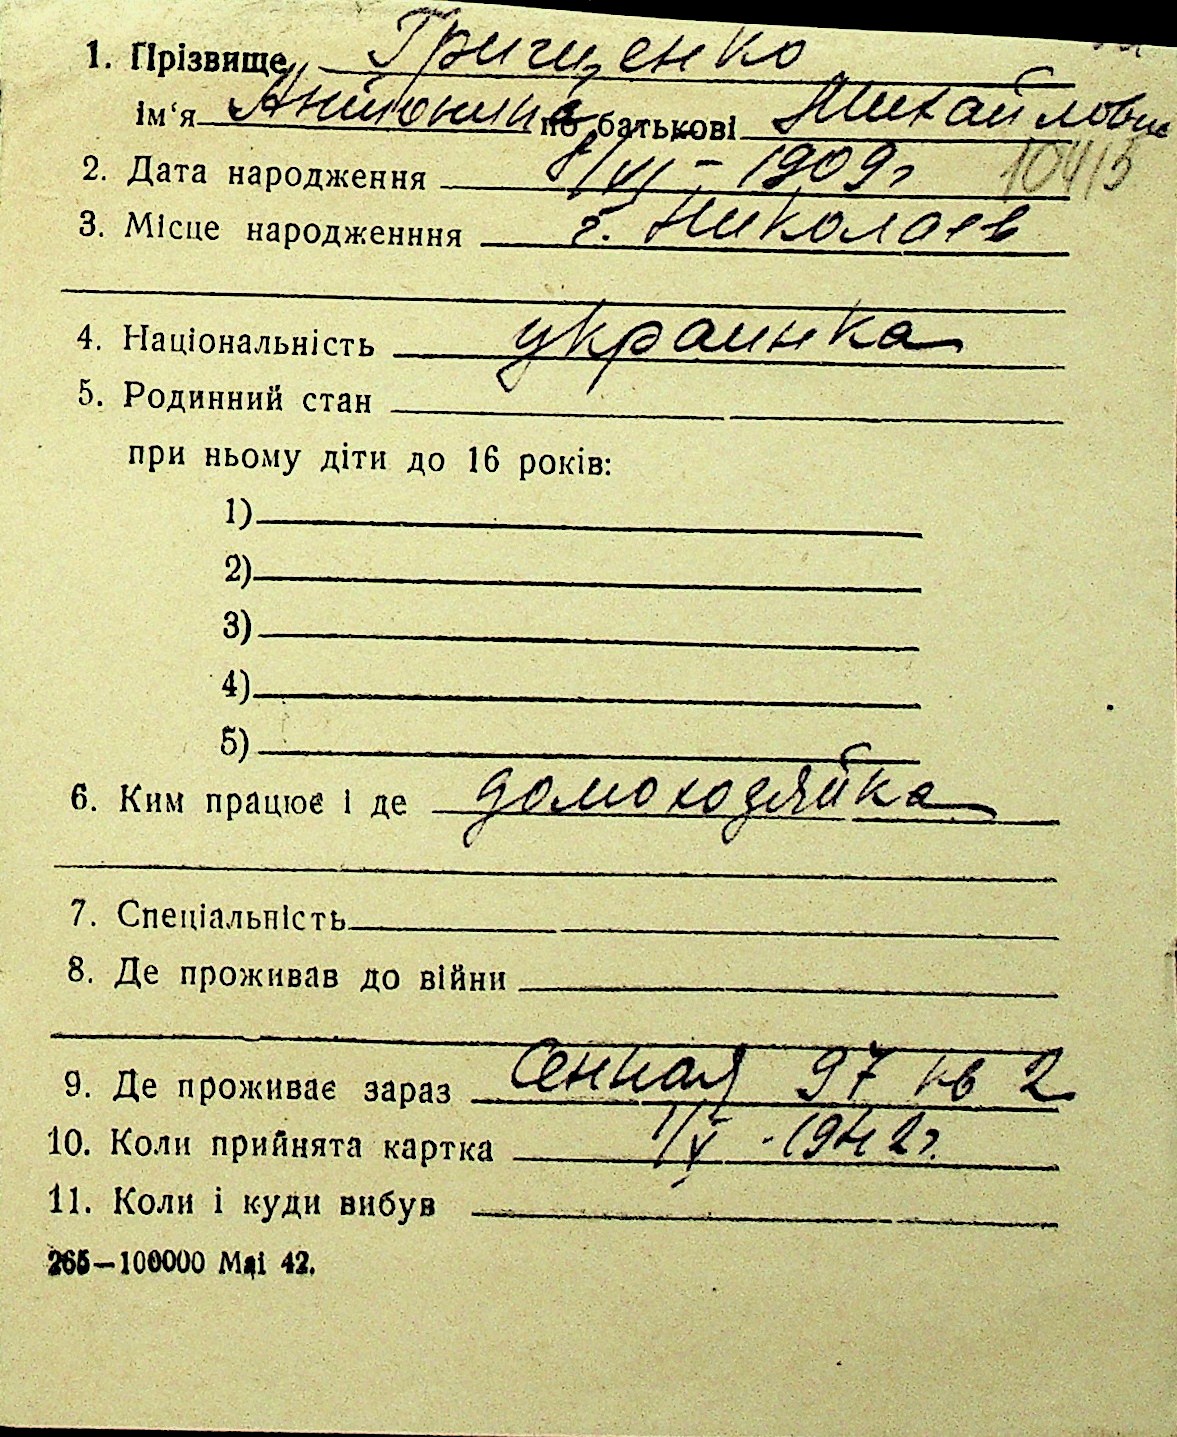 1. Прізвище Грищенко
ім‘я Антонина по батькові Михайловна
10415
2. Дата народження 8/VI – 1909 г
3. Місце народженння г. Николаев
4. Національність украинка
5. Родинний стан
при ньому діти до 16 років:
1)
2)
3)
4)
5)
6. Ким працює і де домохозяйка
7. Спеціальність
8. Де проживав до війни
9. Де проживає зараз Сенная 97 кв 2
10. Коли прийнята картка 1/X - 1942 г.
11. Коли і куди вибув
265—100000 Маі 42.